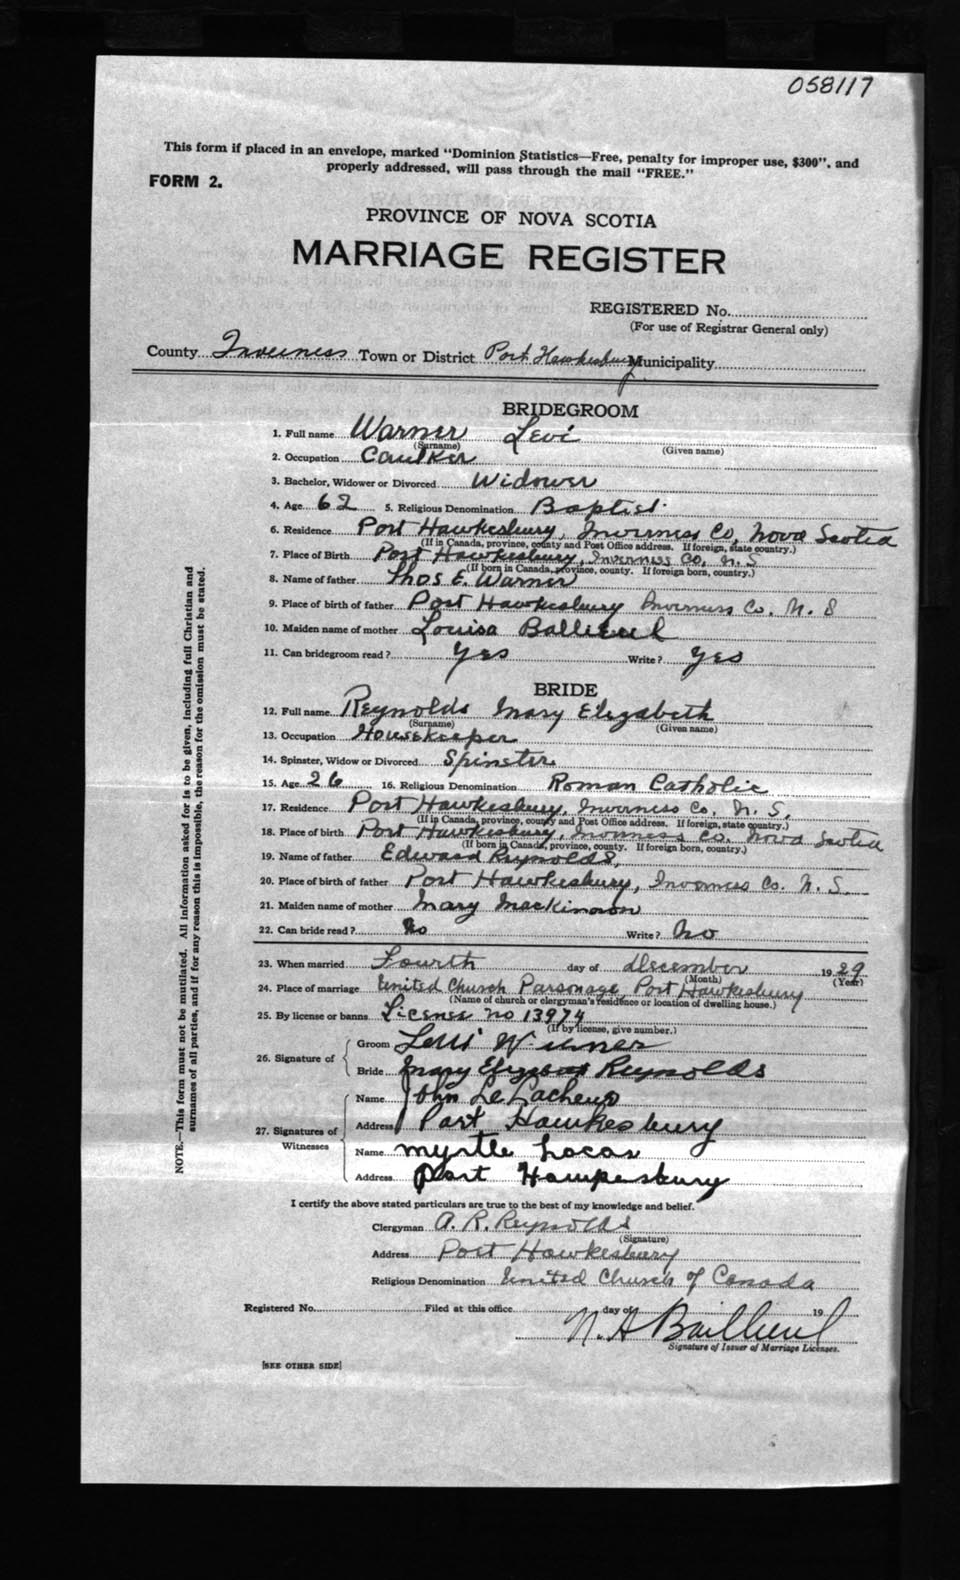 058117
This form if placed in an envelope, marked "Dominion Statistics—Free, penalty for improper use, $300", and
properly addressed, will pass through the mail "FREE."
FORM 2.
PROVINCE OF NOVA SCOTIA
MARRIAGE REGISTER
REGISTERED No.
(For use of Registrar General only)
County Inverness Town or District Port Hawkesbury Municipality
BRIDEGROOM
1. Full name Warner Levi
(Surname) (Given name)
2. Occupation Caulker
3. Bachelor, Widower or Divorced Widower
4. Age 62 5. Religious Denomination Baptist
6. Residence Port Hawkesbury, Inverness Co, Nova Scotia
(If in Canada, province, county and Post Office address. If foreign, state country.)
7. Place of Birth Port Hawkesbury, Inverness Co, N. S
(If born in Canada, province, county. If foreign born, country.)
8. Name of father Thos E. Warner
9. Place of birth of father Port Hawkesbury Inverness Co. N. S
10. Maiden name of mother Louisa
11. Can bridegroom read? Yes Write? Yes
BRIDE
12. Full name Reynolds Mary Elizabeth
(Surname) (Given name)
13. Occupation Housekeeper
14. Spinster, Widow or Divorced Spinster
15. Age 26 16. Religious Denomination Roman Catholic
17. Residence Port Hawkesbury, Inverness Co, N. S.
(If in Canada, province, county and Post Office address. If foreign, state country.)
18. Place of birth Port Hawkesbury, Inverness Co. Nova Scotia
(If born in Canada, province, county. If foreign born, country.)
19. Name of father Edward Reynolds,
20. Place of birth of father Port Hawkesbury, Inverness Co. N. S.
21. Maiden name of mother Mary Mackinnon
22. Can bride read? No Write? No
23. When married Fourth day of December 1929
(Month) (Year)
24. Place of marriage United Church Parsonage, Port Hawkesbury
(Name of church or clergyman's residence or location of dwelling house.)
25. By license or banns License no 13974
(If by license, give number.)
26. Signature of Groom Levi Warner
Bride Mary Elizabeth Reynolds
27. Signatures of Witnesses Name John Le Lacheur
Address Port Hawkesbury
Name myrtle Lucas
Address port Hawpesbury
I certify the above stated particulars are true to the best of my knowledge and belief.
Clergyman A. R. Reynolds
(Signature)
Address Port Hawkesbury
Religious Denomination United Church of Canada
Registered No. Filed at this office day of 19
N. A Bailheul
Signature of Issuer of Marriage Licenses.
[SEE OTHER SIDE]
NOTE.—This form must not be mutilated. All information asked for is to be given, including full Christian and
surnames of all parties, and if for any reason this is impossible, the reason for the omission must be stated.